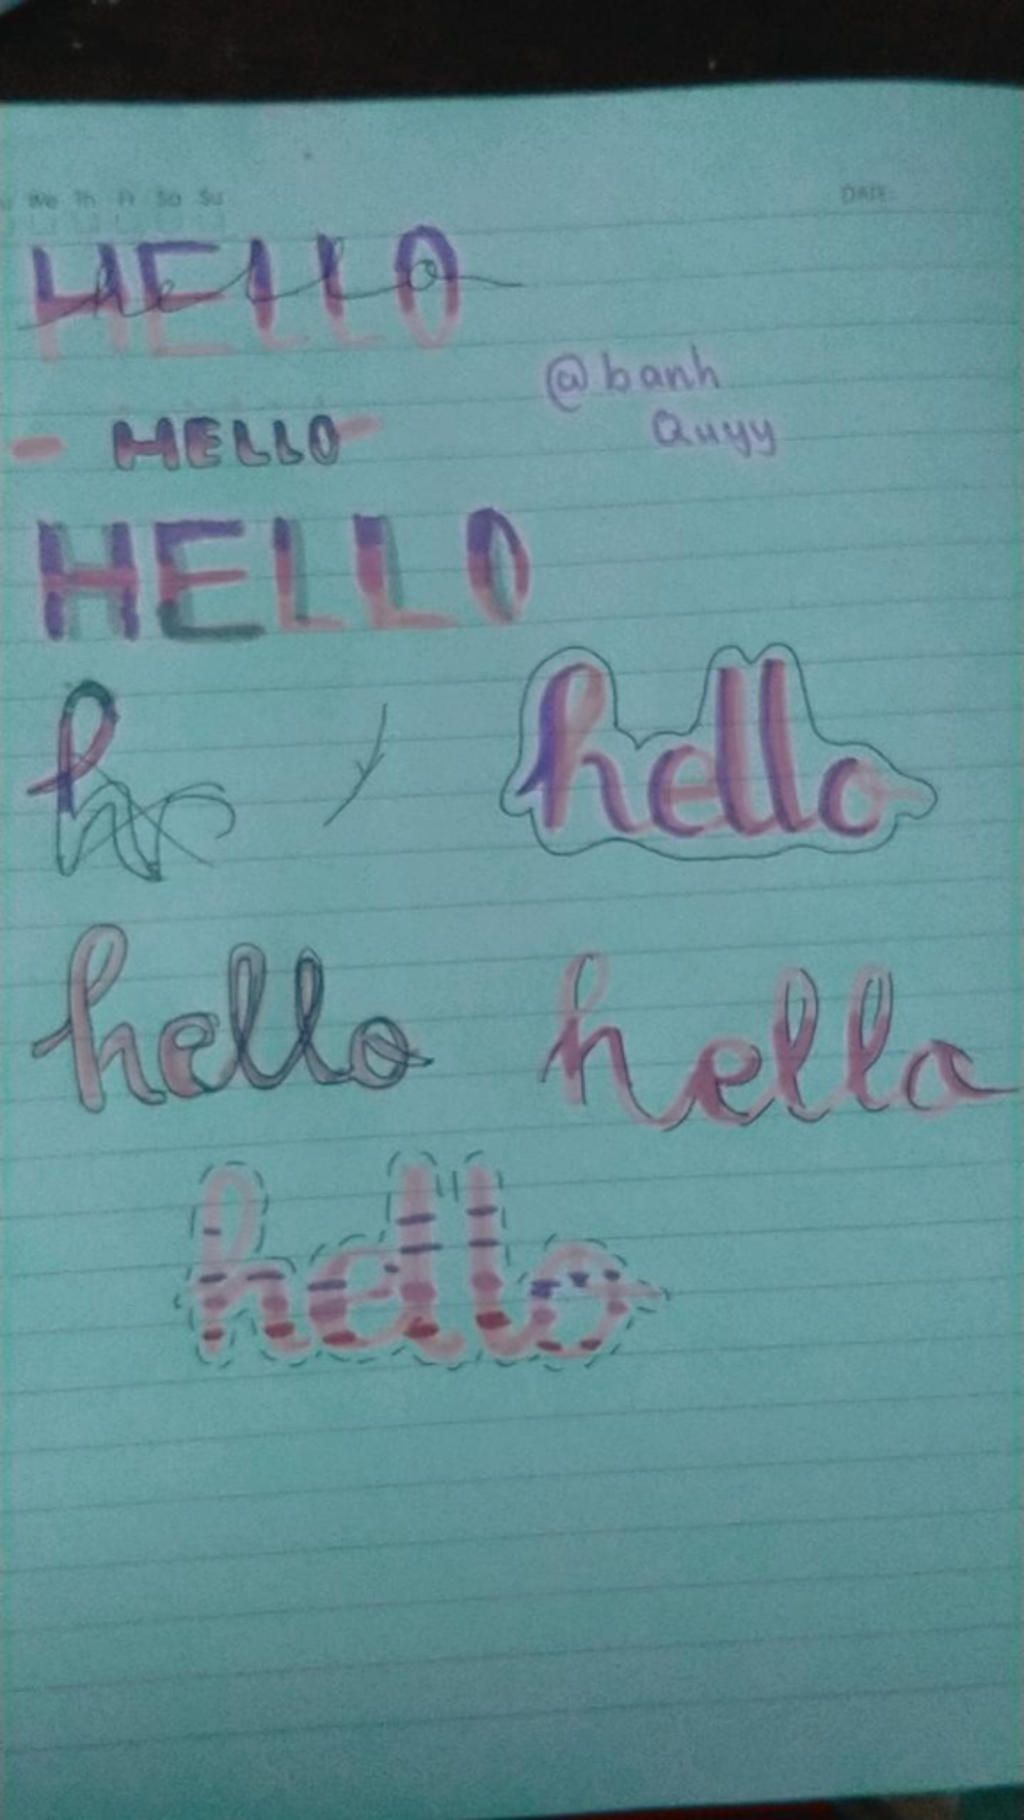 We Th Fr Sa Su DATE:
HELLO
hello
@banh
Quyy
HELLO
HELLO
h hello
hello hello
hello